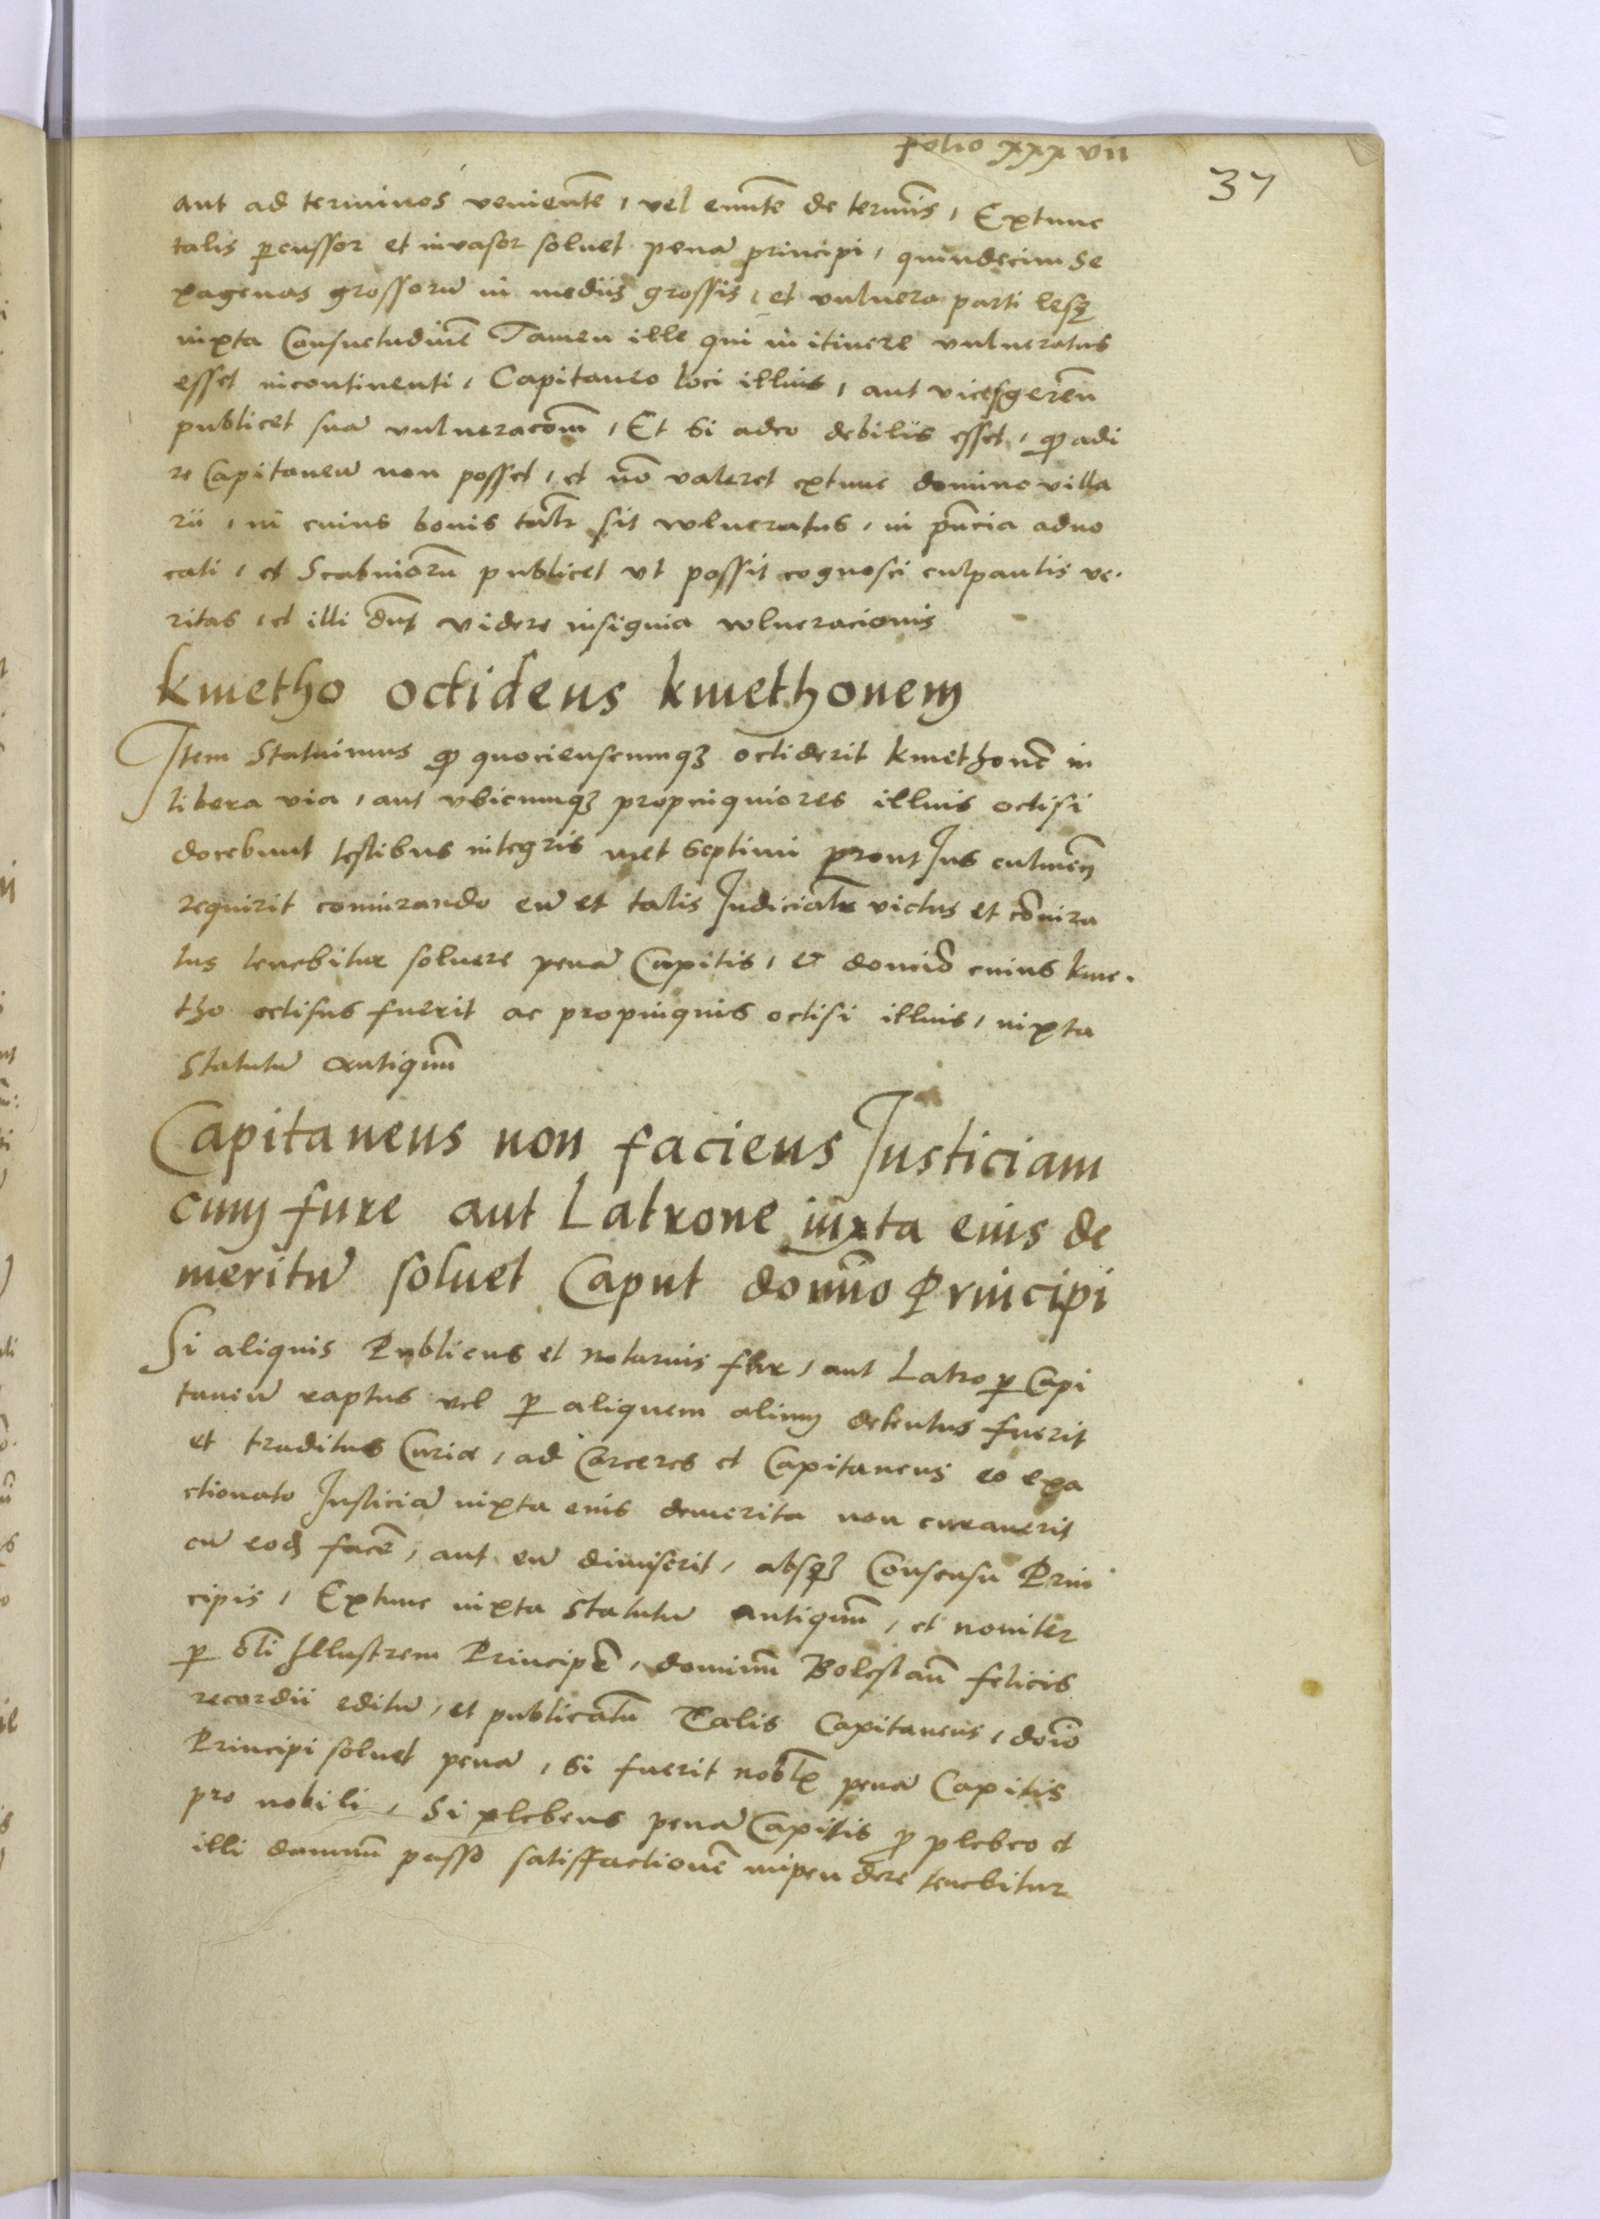 folio xxxvii
37
aut ad terminos venientē, vel euntē de terminis, Extunc
talis ꝑcussor et invasor soluet penā principi, quindecim se
xagenas grossorū in mediis grossis, et vulnera parti lesę
iuxta Consuetudinē Tamen ille qui in itinere vulneratus
esset incontinenti, Capitaneo loci illius, aut vicesgeren̄
publicet suā vulneracōm̄, Et Si adeo debilis esset, ꝙ adi
re Capitaneū non posset, et nō valeret extunc domino villa
rū, in cuius bonis tal̄r sit vvlneratus, in pn̄cia aduo
cati, et Scabinorū publicet vt possit cognosci culpantis ve
ritas, et illi dn̄t videre insignia vvlneracionis
kmetho octidens kmethonem
Item Statuimus ꝙ quocienscumqꝫ octiderit kmethonē in
libera via, aut vbicumqꝫ propinquiores illius octisi
docebunt testibus integris met septimi prout Ius culmen̄
requirit coniurando eū et talis Iudicial̄r victus et cōniura
tus tenebitur soluere penā Capitis, et domīo cuius kme
tho octisus fuerit ac propinquis octisi illius, iuxta
Statutū antiquū
Capitaneus non faciens Iusticiam
cum fure aut Latrone iuxta eius de
meritū soluet Caput domīno Principi
Si aliquis Publicus et notarius fur, aut Latro ꝑ Capi
taneū raptus vel ꝑ aliquem alium detentus fuerit
et traditus Curiæ, ad Carceres et Capitaneus eo exa
ctionato Iusticiā iuxta eius demerita non curauerit
cū eodē facē, aut eū dimiserit, absqꝫ Consensu Prin
cipis, Extunc iuxta Statutū antiquū, et nouiter
ꝑ oli Illustrem Principē, dominū Boleslaū felicis
recordii editū, et publicatū Talis Capitaneus, doīo
Principi soluet penā, Si fuerit nobil̄ penā Capitis
pro nobili, Si plebeus penā Capitis ꝓ plebeo et
illi damnū passo satisfactionē impendere tenebitur